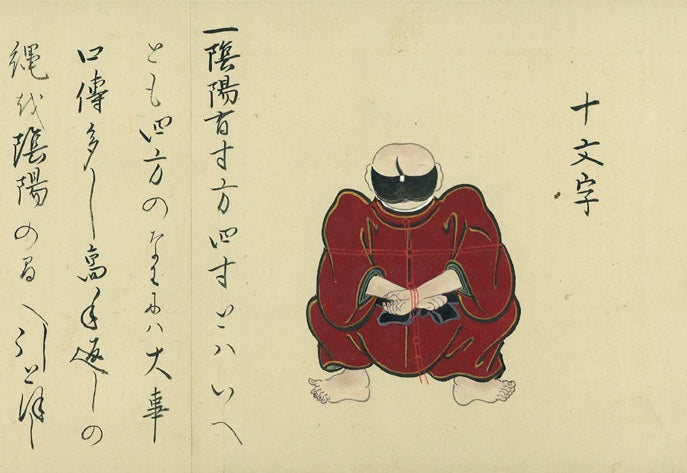 十文字
一陰陽有寸方四寸とハいへ
とも四方のなわハ大事
口傳多し高手返しの
縄を陰陽の間へ引と